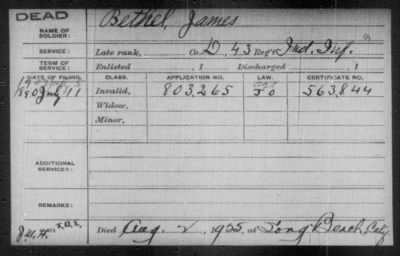 DEAD
NAME OF SOLDIER: Bethel, James
SERVICE: Late rank, Co. D, 43 Reg't Ind. Inf.
TERM OF SERVICE: Enlisted , 1 Discharged , 1
DATE OF FILING. CLASS. APPLICATION NO. LAW. CERTIFICATE NO.
July 11 Invalid, 803.265 563.844
Widow,
Minor,
ADDITIONAL SERVICES:
REMARKS:
Died Aug 2, 1925, at Long Beach, Calif